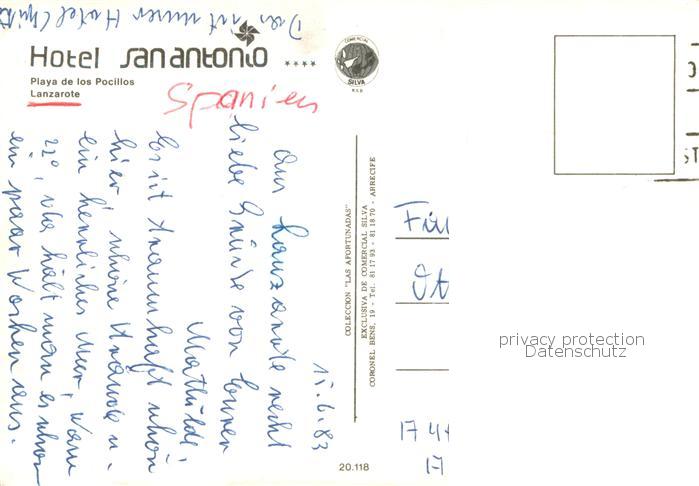 Das ist unser Hotel
Hotel sanantonio ****
Playa de los Pocillos
Lanzarote
Spanien
COMERCIAL
SILVA
15.6.83
Aus Lanzarote recht
liebe Grüße von Eurer
Mathilde!
Es ist traumhaft schön
hier, schöne Strände u.
ein herrliches Meer, warm
22°, da hält man es schon
ein paar Wochen aus.
COLECCION "LAS AFORTUNADAS"
EXCLUSIVA DE COMERCIAL SILVA
CORONEL BENS, 19 - Tel. 81 17 93 - 81 18 70 - ARRECIFE
20.118
17 4
17
privacy protection
Datenschutz